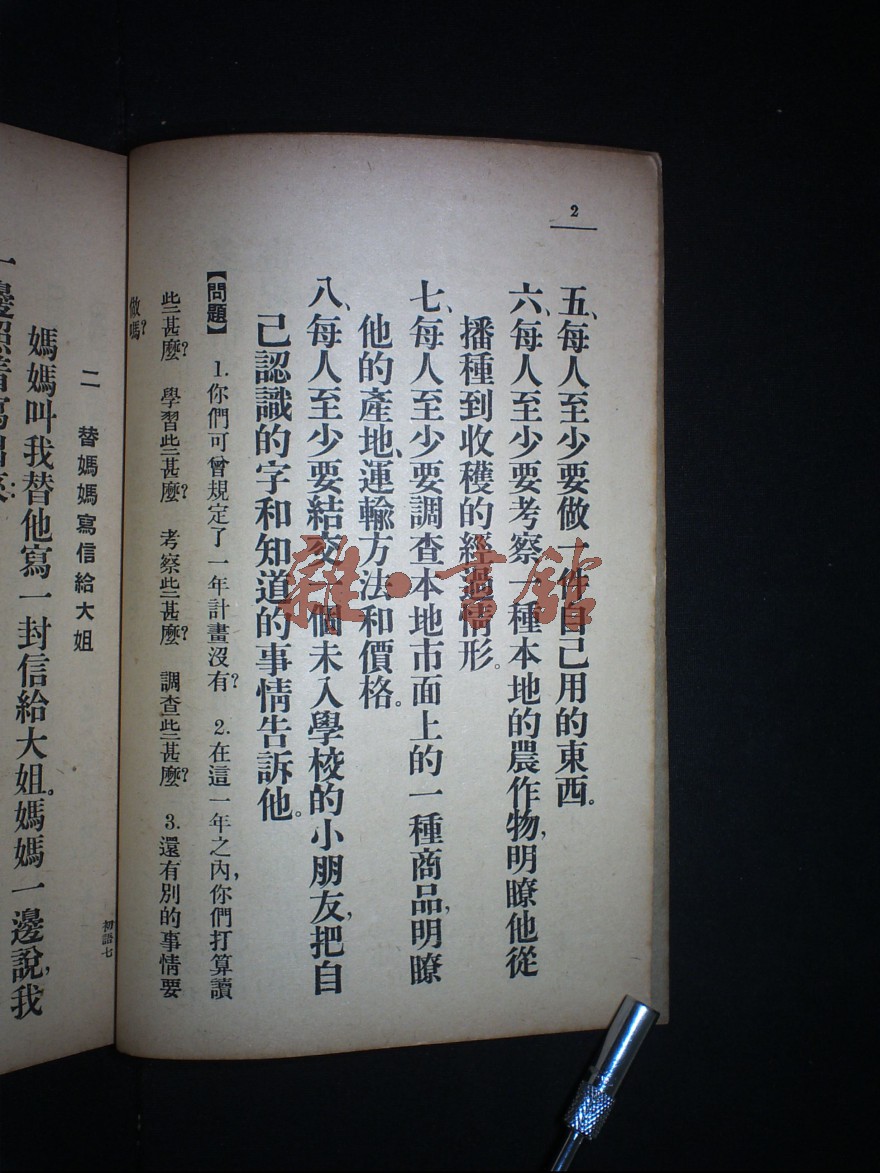 2
五、每人至少要做一件自己用的東西。
六、每人至少要考察一種本地的農作物,明瞭他從
播種到收穫的經過情形。
七、每人至少要調查本地市面上的一種商品,明瞭
他的產地、運輸方法和價格。
八、每人至少要結交一個未入學校的小朋友,把自
己認識的字和知道的事情告訴他。
【問題】 1.你們可曾規定了一年計畫沒有? 2.在這一年之內,你們打算讀
些甚麼? 學習些甚麼? 考察些甚麼? 調查些甚麼? 3.還有別的事情要
做嗎?
初語七
二 替媽媽寫信給大姐
媽媽叫我替他寫一封信給大姐。媽媽一邊說,我
一邊照着寫
雜·書館